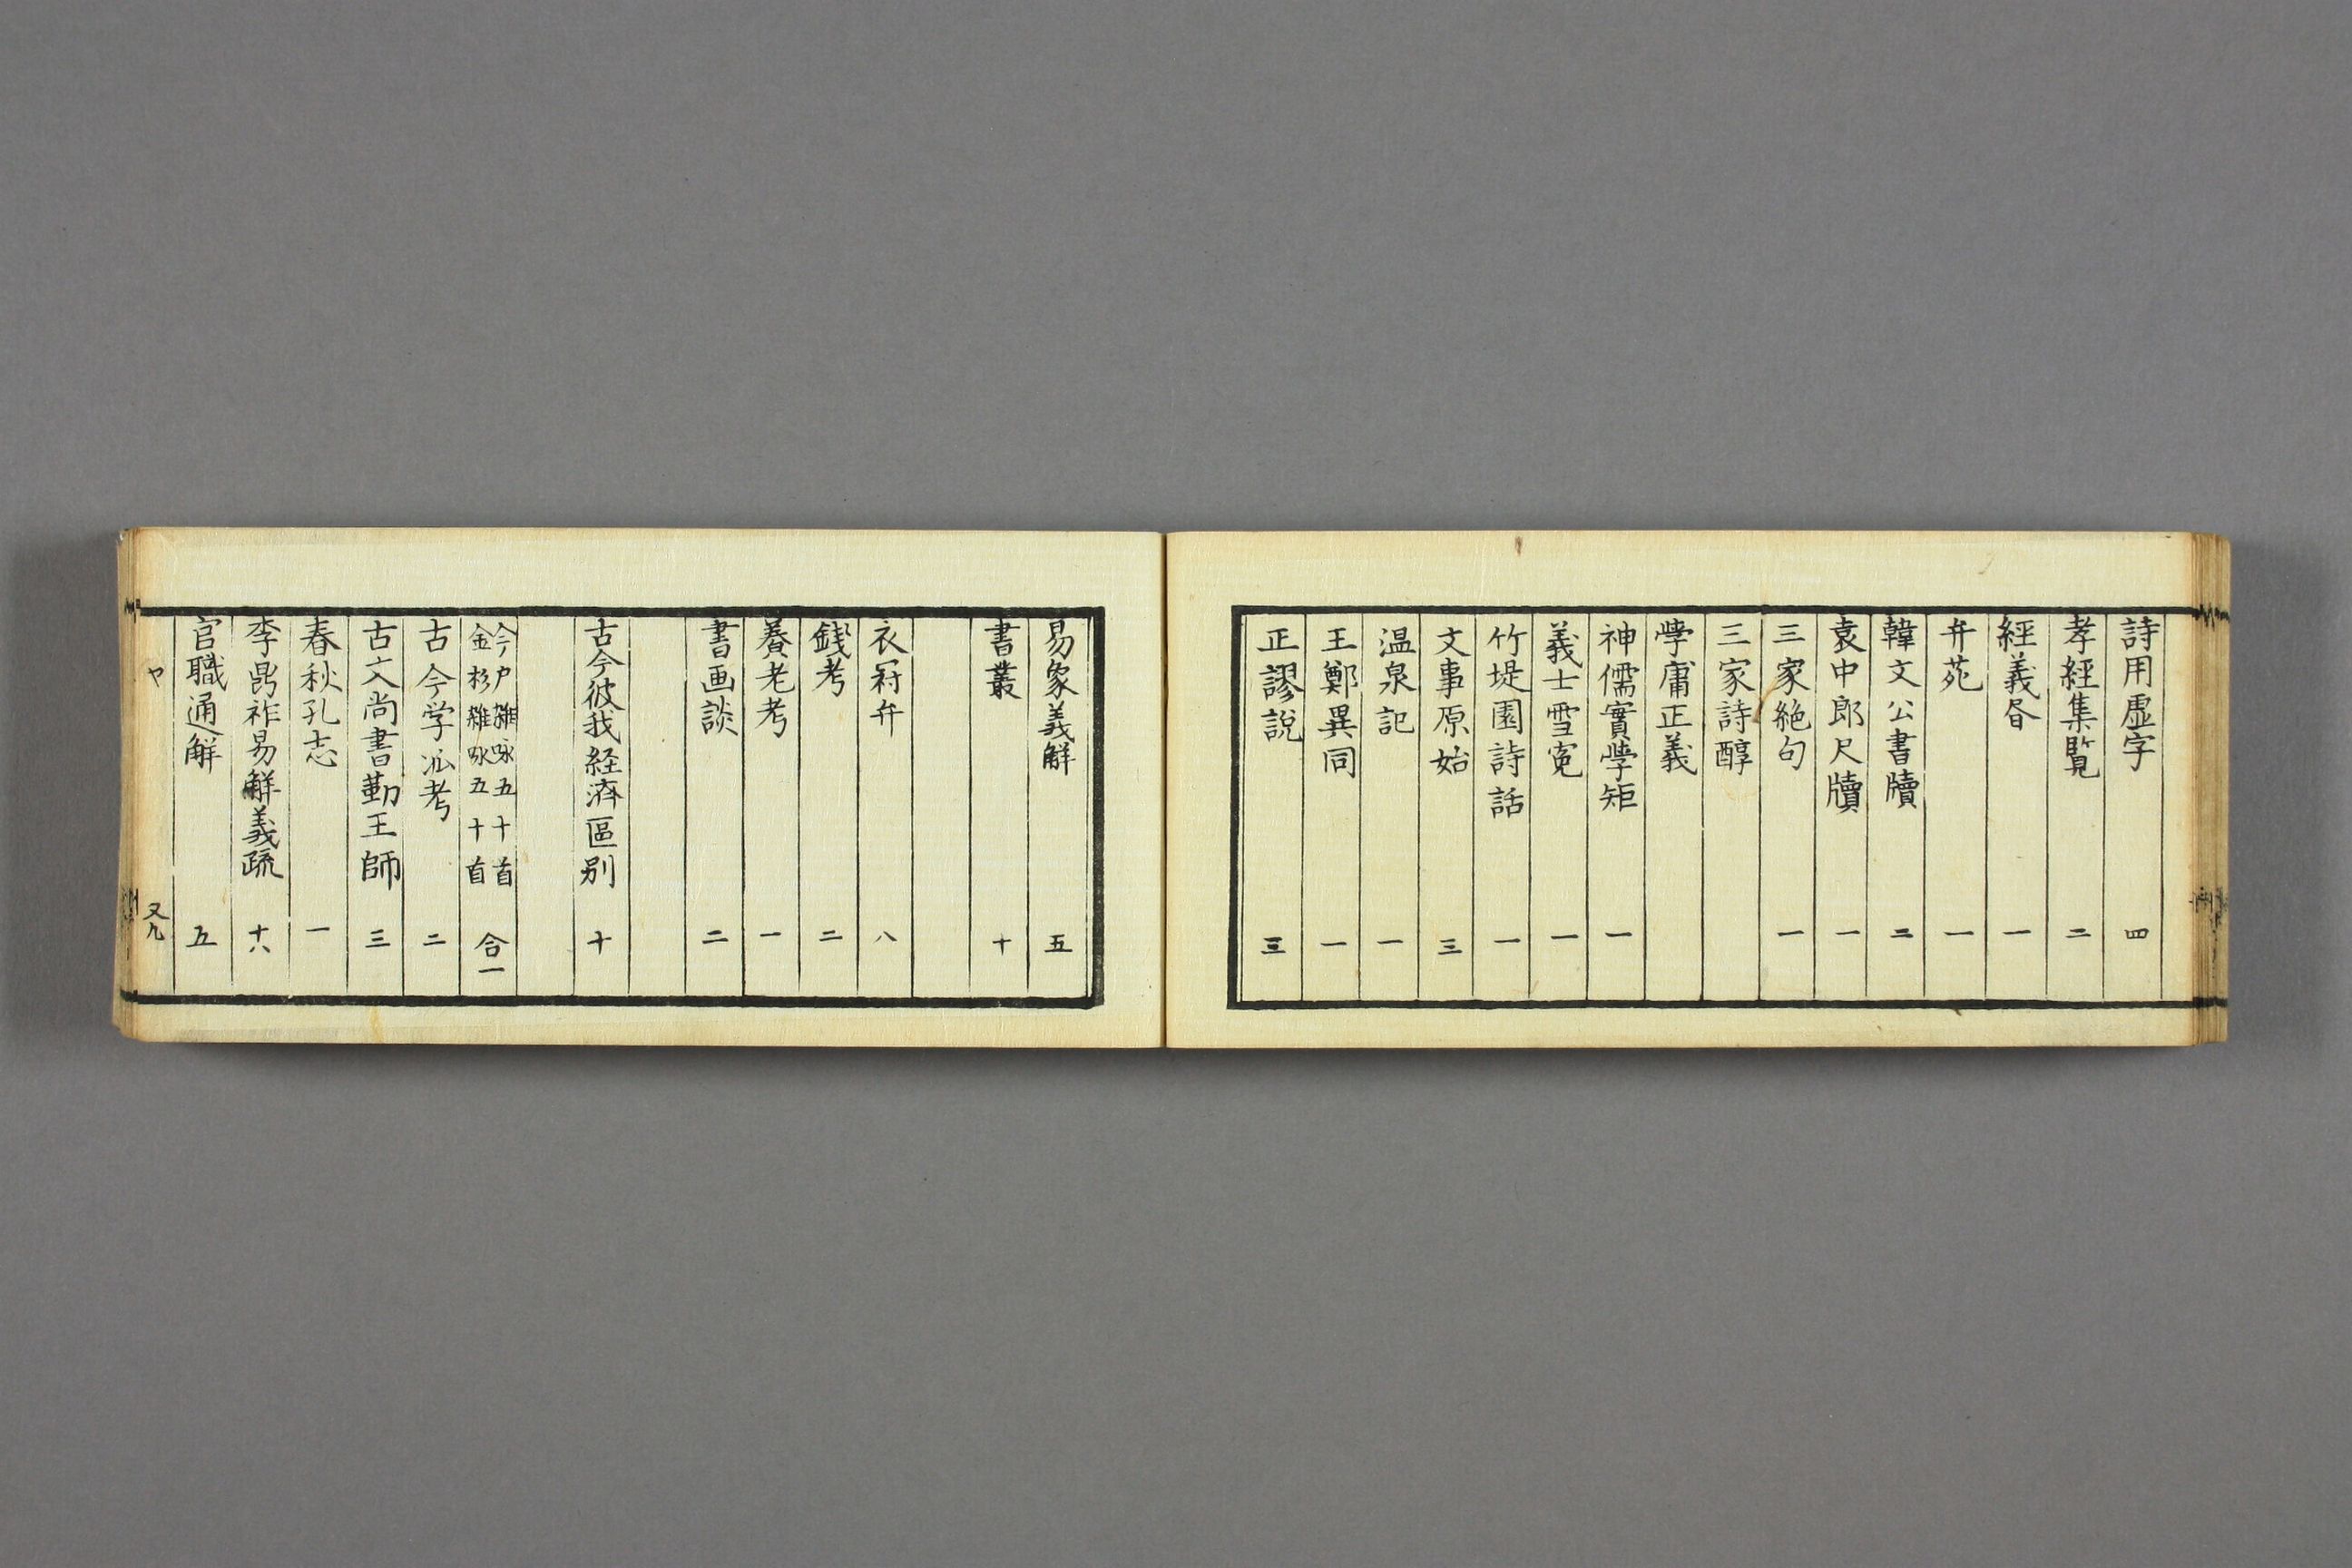 詩用虚字 四
孝経集覧 二
経義昏 一
弁苑 一
韓文公書牘 二
袁中郎尺牘 一
三家絶句 一
三家詩醇
學庸正義
神儒實學矩 一
義士雪冤 一
竹堤園詩話 一
文事原始 三
温泉記 一
王鄭異同 一
正謬説 三
易象義解 五
書叢 十
衣冠弁 八
銭考 二
養老考 一
書画談 二
古今彼我経済區别 十
今戸雑咏五十首
金杉雑咏五十首 合一
古今学派考 二
古文尚書勤王師 三
春秋孔志 一
李鼎祚易解義疏 十八
官職通解 五
ヤ 又九